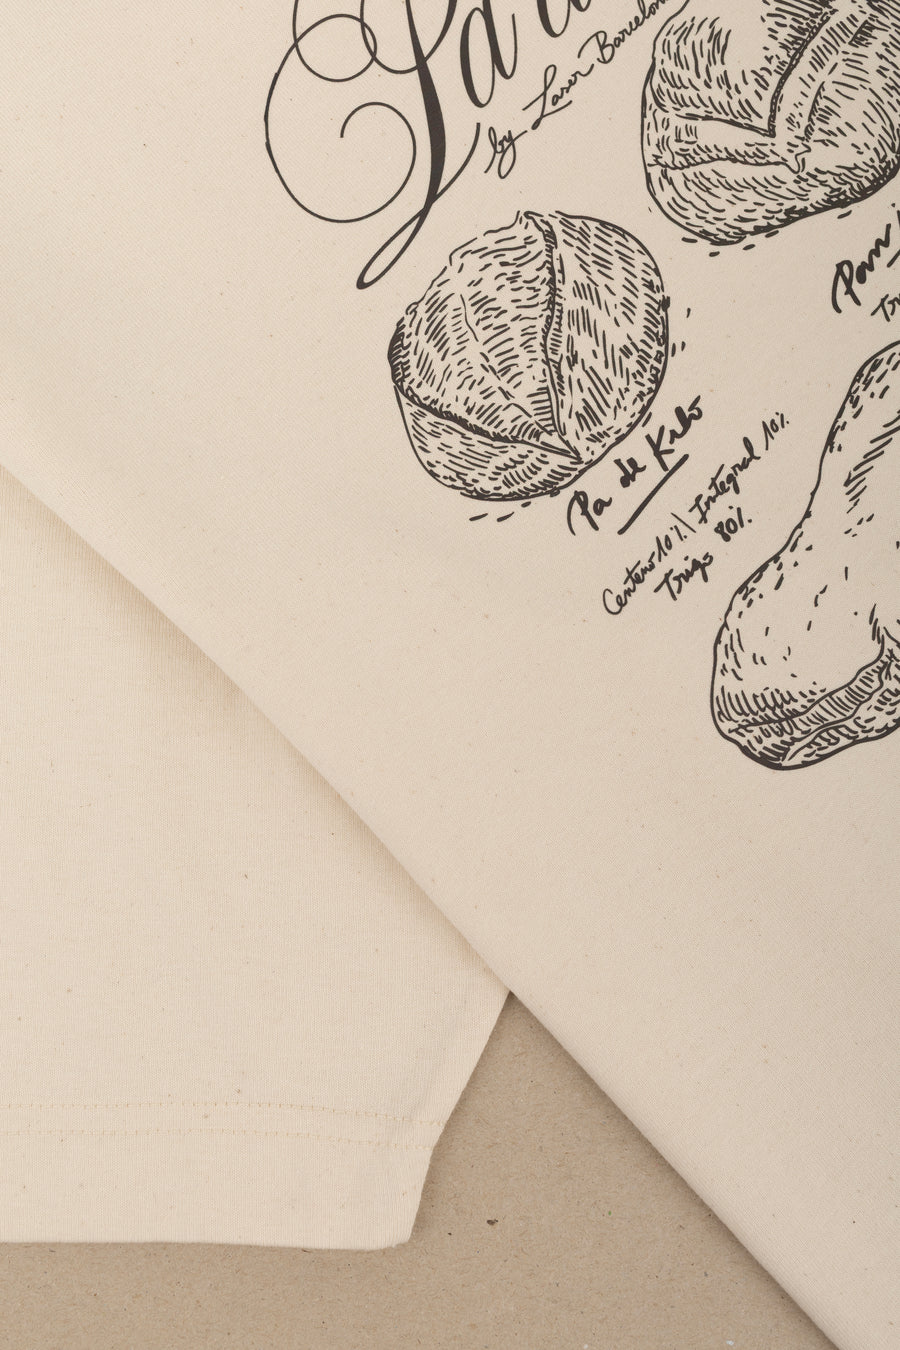 by Laser Barcelona
Pa de Kilo
Centeno 10% | Integral 10%
Trigo 80%
Pan